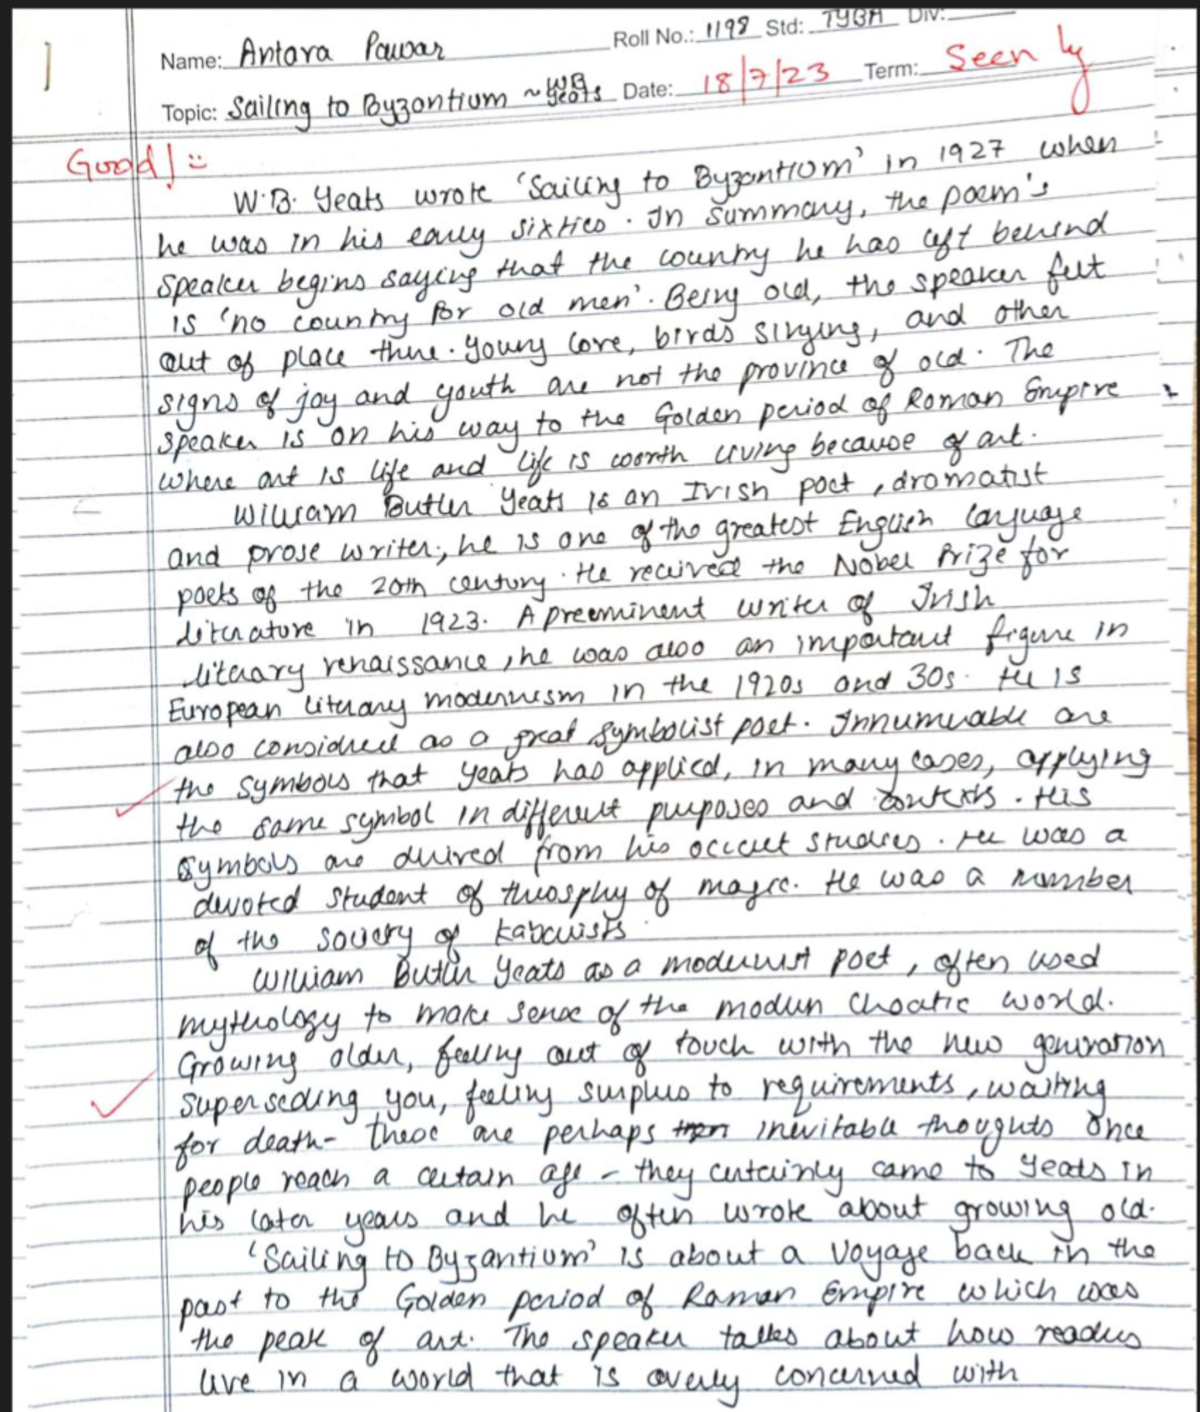 Name: Antara Pawar Roll No.: 1198 Std: TYBA Div:
Topic: Sailing to Byzantium ~ WB Yeats Date: 18/7/23 Term: Seen
Good! :)
W.B. Yeats wrote 'Sailing to Byzantium' in 1927 when
he was in his early sixties. In summary, the poem's
speaker begins saying that the country he has left behind
is 'no country for old men'. Being old, the speaker felt
out of place there. Young love, birds singing, and other
signs of joy and youth are not the province of old. The
speaker is on his way to the Golden period of Roman Empire
where art is life and life is worth living because of art.
William Butler Yeats is an Irish poet, dramatist
and prose writer, he is one of the greatest English language
poets of the 20th century. He received the Nobel Prize for
literature in 1923. A preeminent writer of Irish
literary renaissance, he was also an important figure in
European literary modernism in the 1920s and 30s. He is
also considred as a great symbolist poet. Innumerable are
the symbols that Yeats has applied, in many cases, applying
the same symbol in different purposes and contexts. His
symbols are derived from his occult studies. He was a
devoted student of theosphy of magic. He was a member
of the society of kabalists.
William Butler Yeats as a modernist poet, often used
mythology to make sense of the modern choatic world.
Growing older, feeling out of touch with the new generation
superseding you, feeling surplus to requirements, waiting
for death- these are perhaps inevitable thoughts once
people reach a certain age - they certainly came to Yeats in
his later years and he often wrote about growing old.
'Sailing to Byzantium' is about a voyage back in the
past to the Golden period of Roman Empire which was
the peak of art. The speaker talks about how readers
live in a world that is overly concerned with